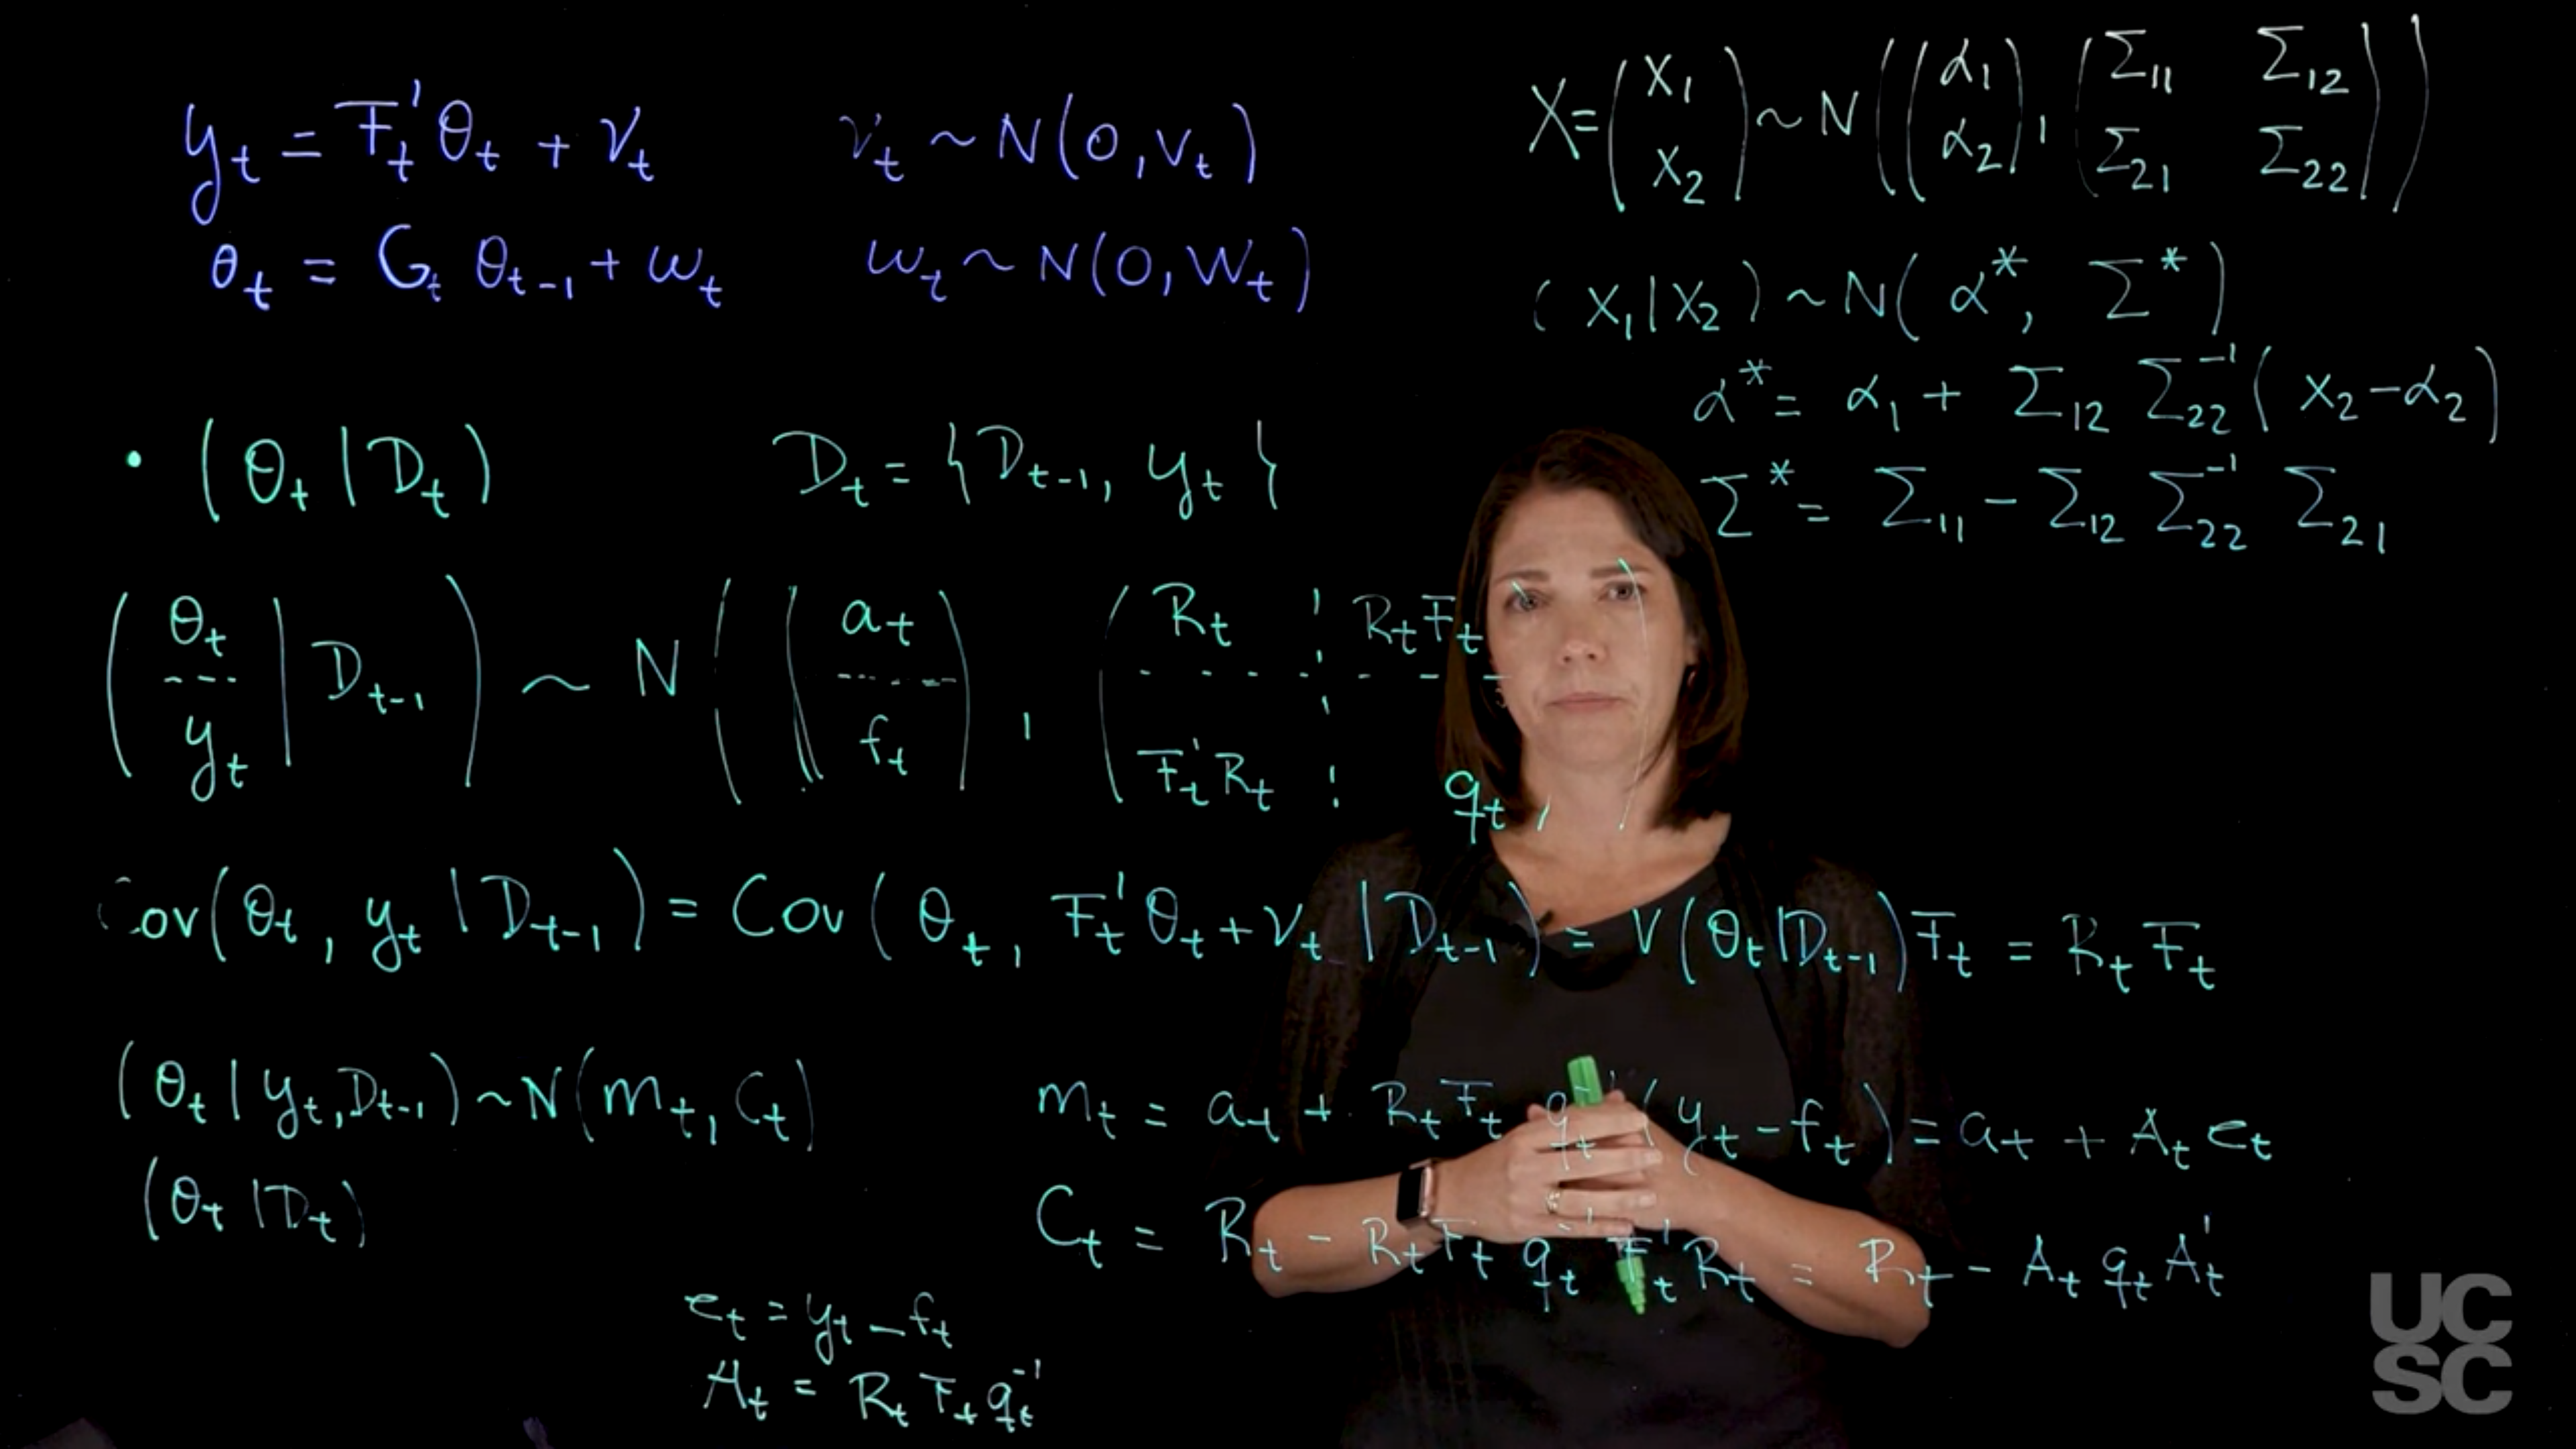 y_t = F_t' θ_t + ν_t    ν_t ~ N(0, v_t)
θ_t = G_t θ_{t-1} + ω_t    ω_t ~ N(0, W_t)
X = (X_1 X_2) ~ N((α_1 α_2), (Σ_11 Σ_12 Σ_21 Σ_22))
(X_1 | X_2) ~ N(α*, Σ*)
α* = α_1 + Σ_12 Σ_22^{-1} (X_2 - α_2)
Σ* = Σ_11 - Σ_12 Σ_22^{-1} Σ_21
• (θ_t | D_t)    D_t = {D_{t-1}, y_t}
(θ_t --- y_t | D_{t-1}) ~ N((a_t --- f_t), (R_t ¦ R_t F_t --- F_t' R_t ¦ q_t))
Cov(θ_t, y_t | D_{t-1}) = Cov(θ_t, F_t' θ_t + ν_t | D_{t-1}) = V(θ_t | D_{t-1}) F_t = R_t F_t
(θ_t | y_t, D_{t-1}) ~ N(m_t, C_t)    m_t = a_t + R_t F_t q_t^{-1} (y_t - f_t) = a_t + A_t e_t
(θ_t | D_t)    C_t = R_t - R_t F_t q_t^{-1} F_t' R_t = R_t - A_t q_t A_t'
e_t = y_t - f_t
A_t = R_t F_t q_t^{-1}
UC
SC